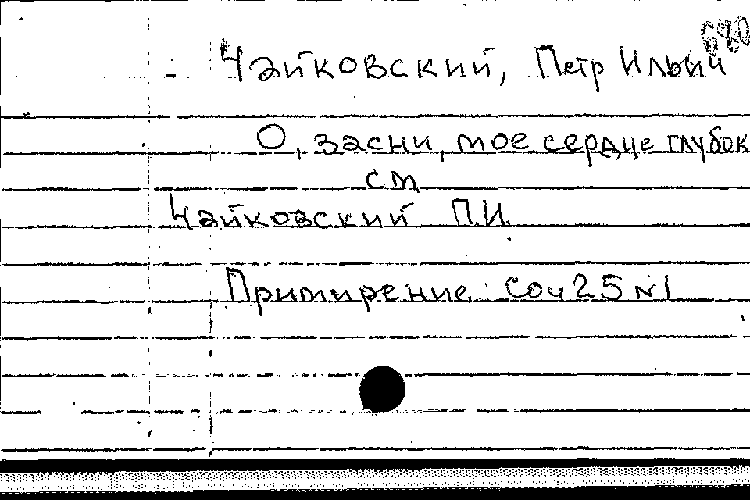 680
Чайковский, Петр Ильич
О, засни, мое сердце глубок
см
Чайковский П.И.
Примирение. Соч 25 №1